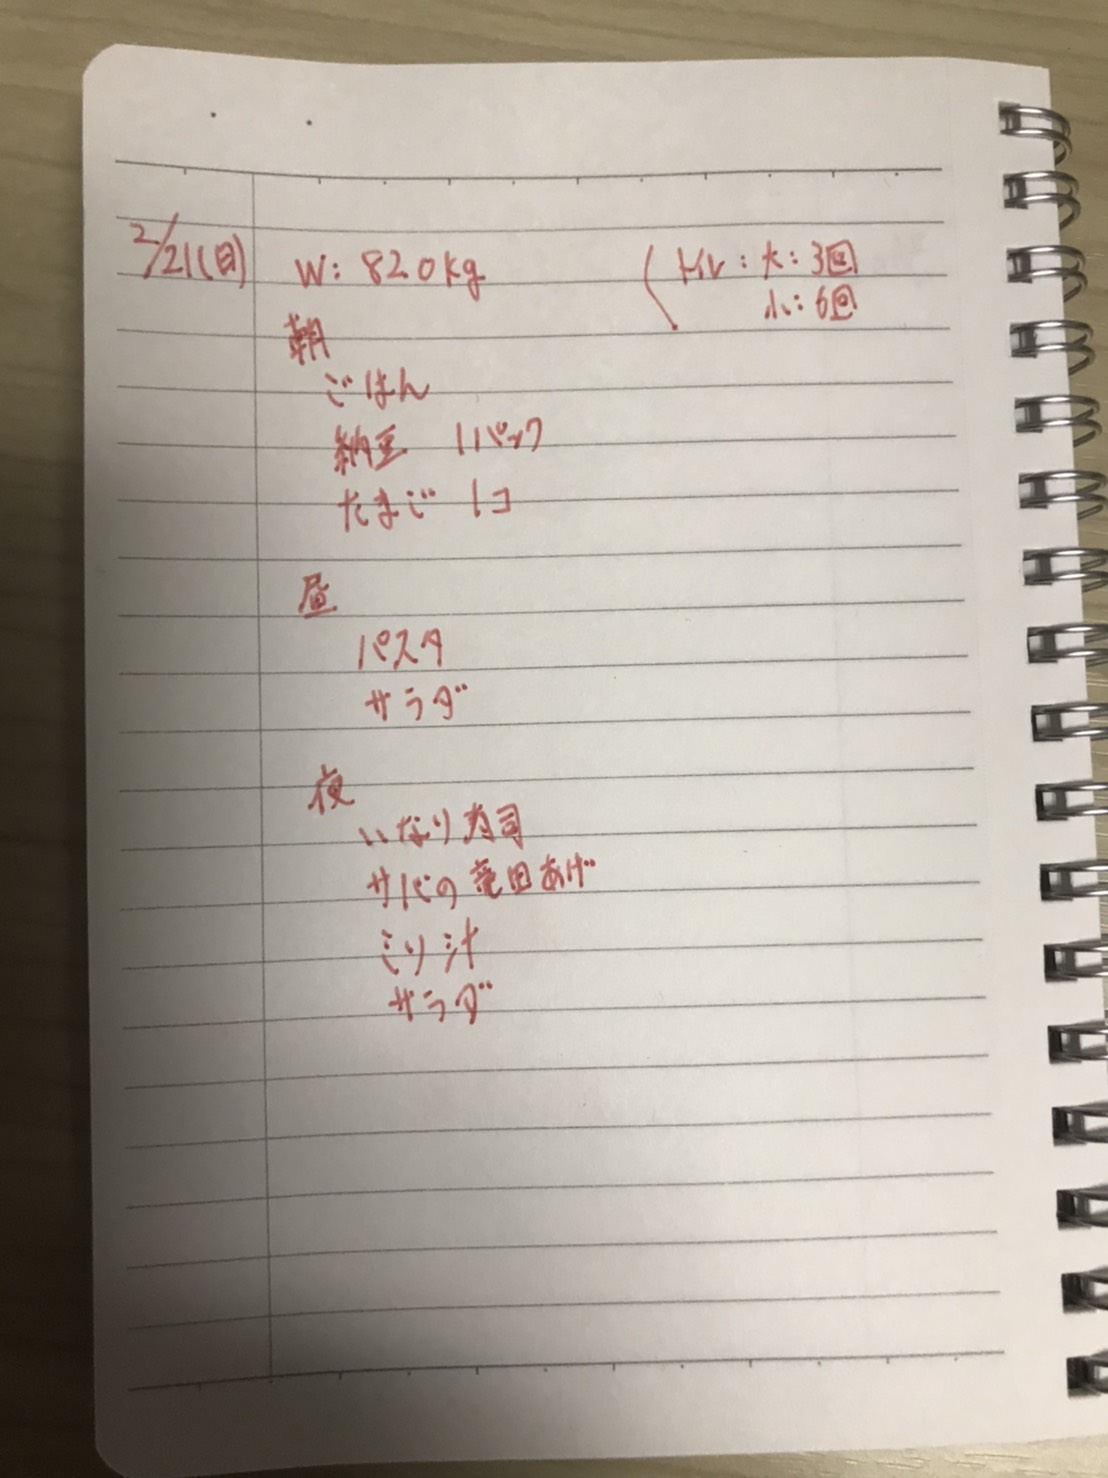 2/21(日)
W: 82.0kg
トイレ:大:3回
小:6回
朝
ごはん
納豆 1パック
たまご 1コ
昼
パスタ
サラダ
夜
いなり寿司
サバの竜田あげ
ミソ汁
サラダ